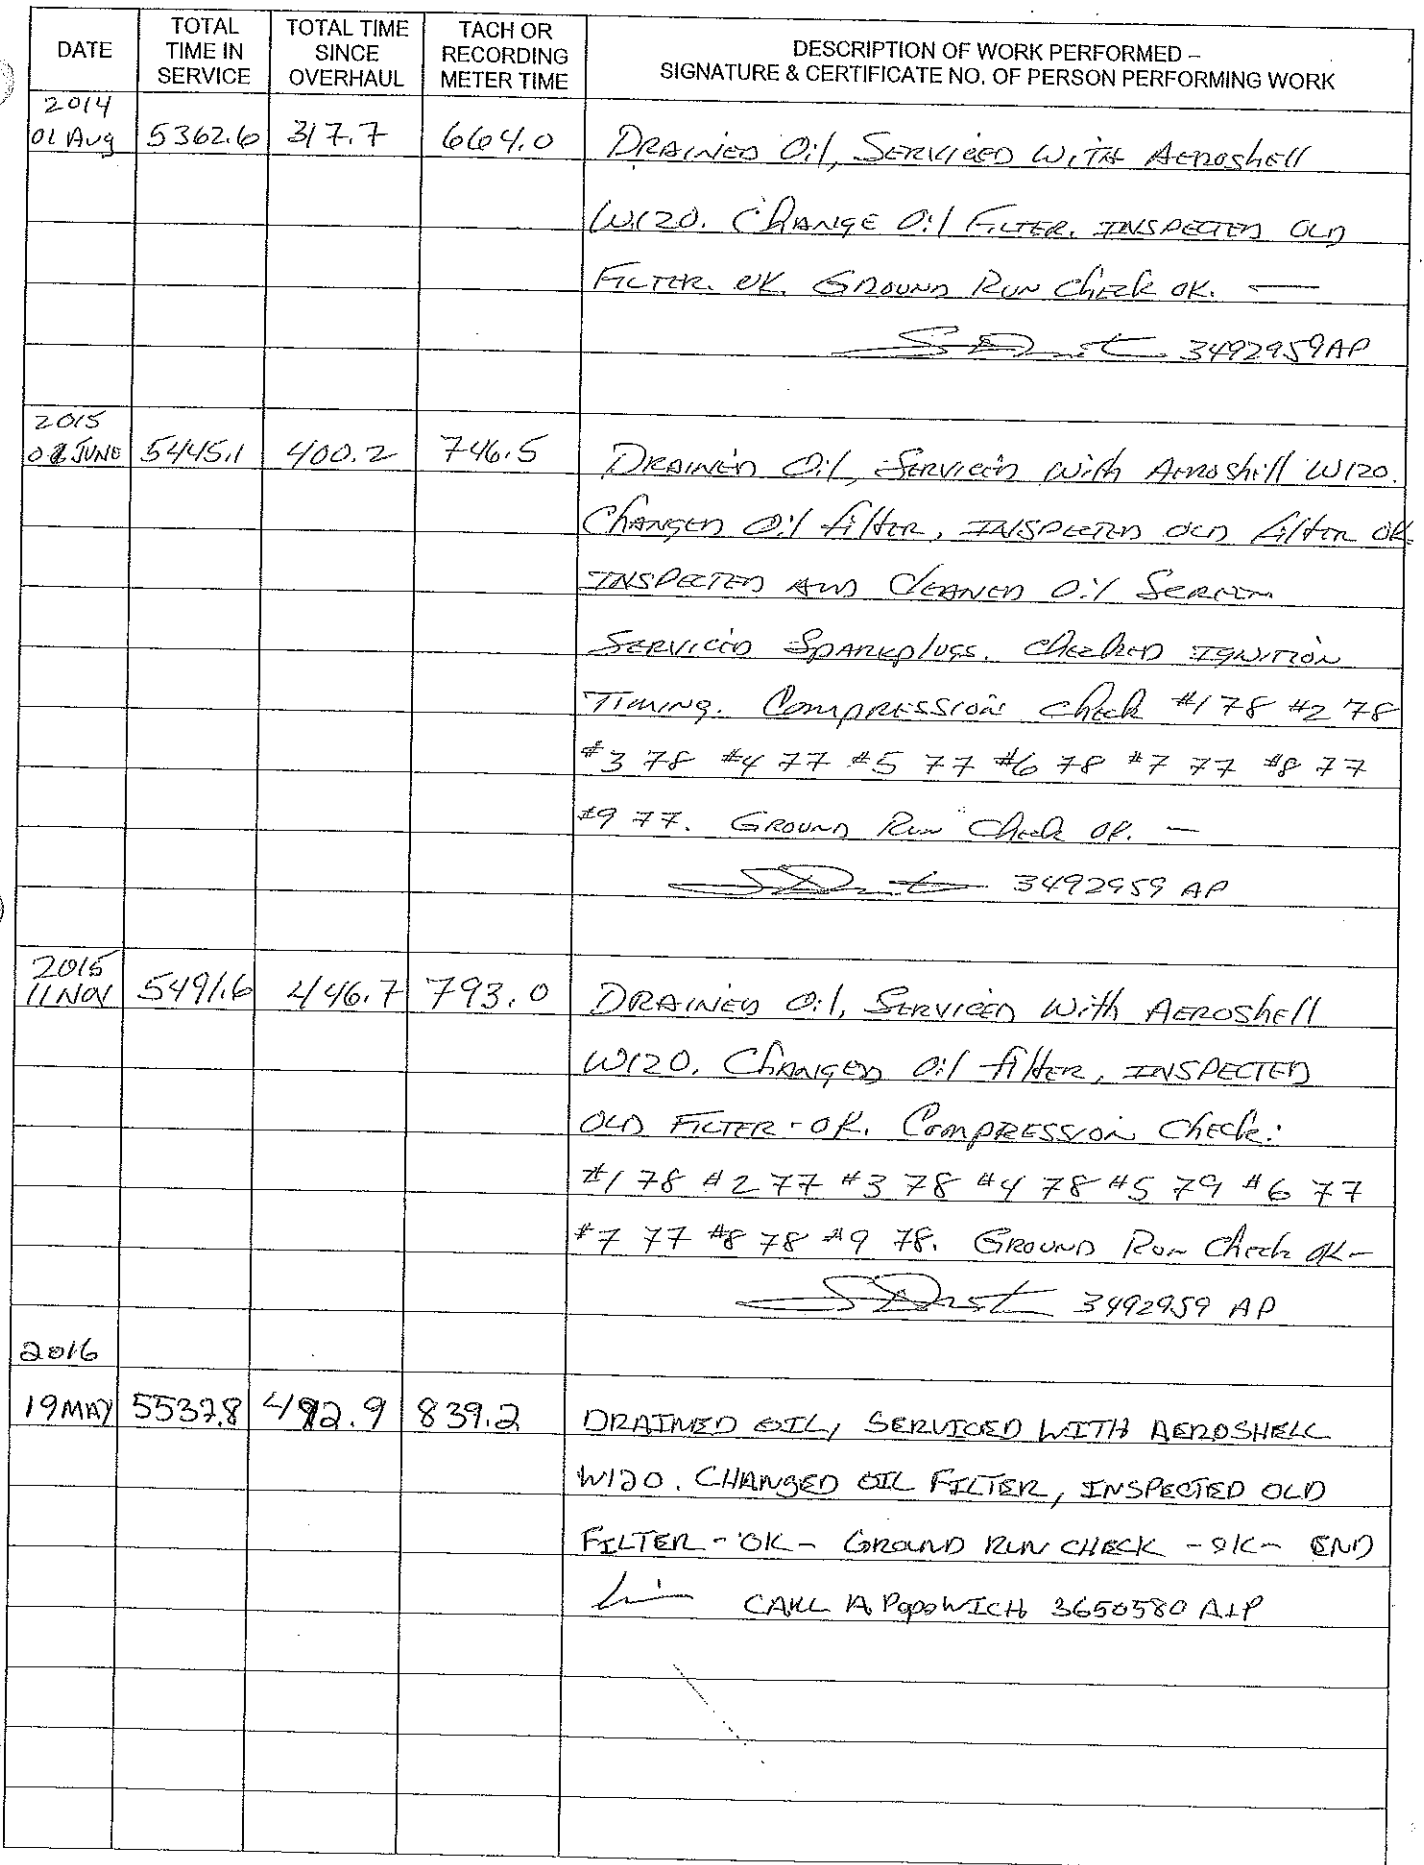 DATE
TOTAL TIME IN SERVICE
TOTAL TIME SINCE OVERHAUL
TACH OR RECORDING METER TIME
DESCRIPTION OF WORK PERFORMED –
SIGNATURE & CERTIFICATE NO. OF PERSON PERFORMING WORK
2014
01 Aug 5362.6 317.7 664.0 DRAINED Oil, SERVICED WITH AEROShell
W120. CHANGE Oil FILTER. INSPECTED OLD
FILTER. OK. GROUND RUN Check OK. —
3492959AP
2015
JUNE 5445.1 400.2 746.5 DRAINED Oil, SERVICED With AEROShell W120.
CHANGED Oil filter, INSPECTED OLD filter OK
INSPECTED AND CLEANED Oil SCREEN
SERVICED SPARKplugs. Checked IGNITION
TIMING. COMPRESSION Check #1 78 #2 78
#3 78 #4 77 #5 77 #6 78 #7 77 #8 77
#9 77. GROUND RUN Check OK. —
3492959 AP
2015
11 NOV 5491.6 446.7 793.0 DRAINED Oil, SERVICED With AEROShell
W120. CHANGED Oil filter, INSPECTED
OLD FILTER - OK. COMPRESSION Check:
#1 78 #2 77 #3 78 #4 78 #5 79 #6 77
#7 77 #8 78 #9 78. GROUND RUN Check OK —
3492959 AP
2016
19 MAY 5537.8 492.9 839.2 DRAINED OIL, SERVICED WITH AEROSHELL
W120. CHANGED OIL FILTER, INSPECTED OLD
FILTER - OK - GROUND RUN CHECK - OK - END
CARL A POPOWICH 3650580 A&P